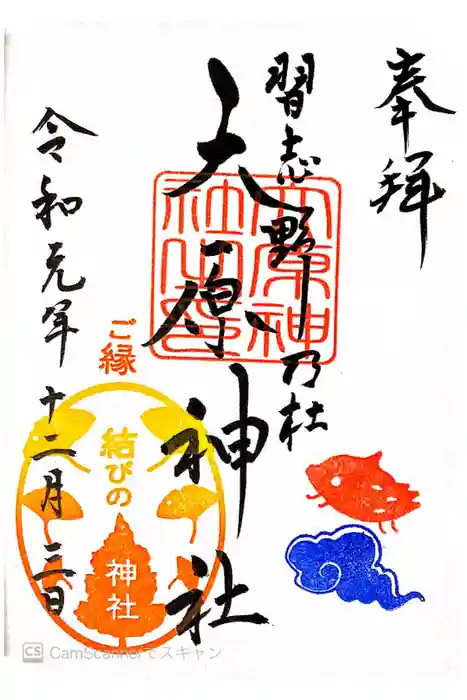 奉拝
習志野乃杜
大原神社
大原神社之印
令和元年十二月三日
ご縁
結びの
神社
CS CamScannerでスキャン